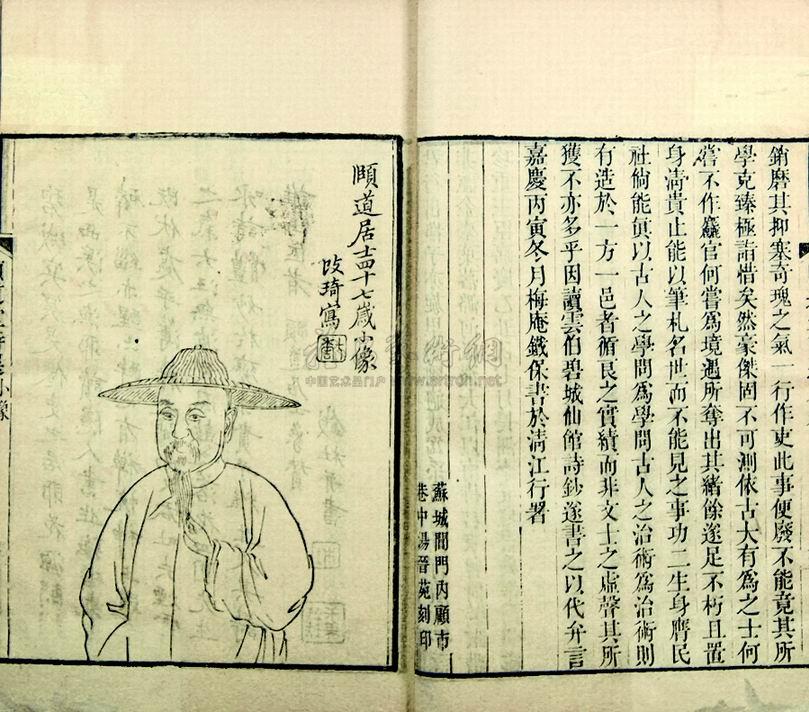 銷磨其抑塞奇瑰之氣一行作吏此事便廢不能竟其所
學克臻極詣惜矣然豪傑固不可測依古大有爲之士何
嘗不作麤官何嘗爲境遇所奪出其緒餘遂足不朽且置
身淸貴止能以筆札名世而不能見之事功二生身膺民
社倘能眞以古人之學問爲學問古人之治術爲治術則
有造於一方一邑者循良之實績而非文士之虛聲其所
獲不亦多乎因讀雲伯碧城仙館詩鈔遂書之以代弁言
嘉慶丙寅冬月梅庵鐵保書於淸江行署
蘇城閶門內顧市
巷中湯晉苑刻印
頤道居士四十七歲小像
改琦寫
小像
中国艺术品门户